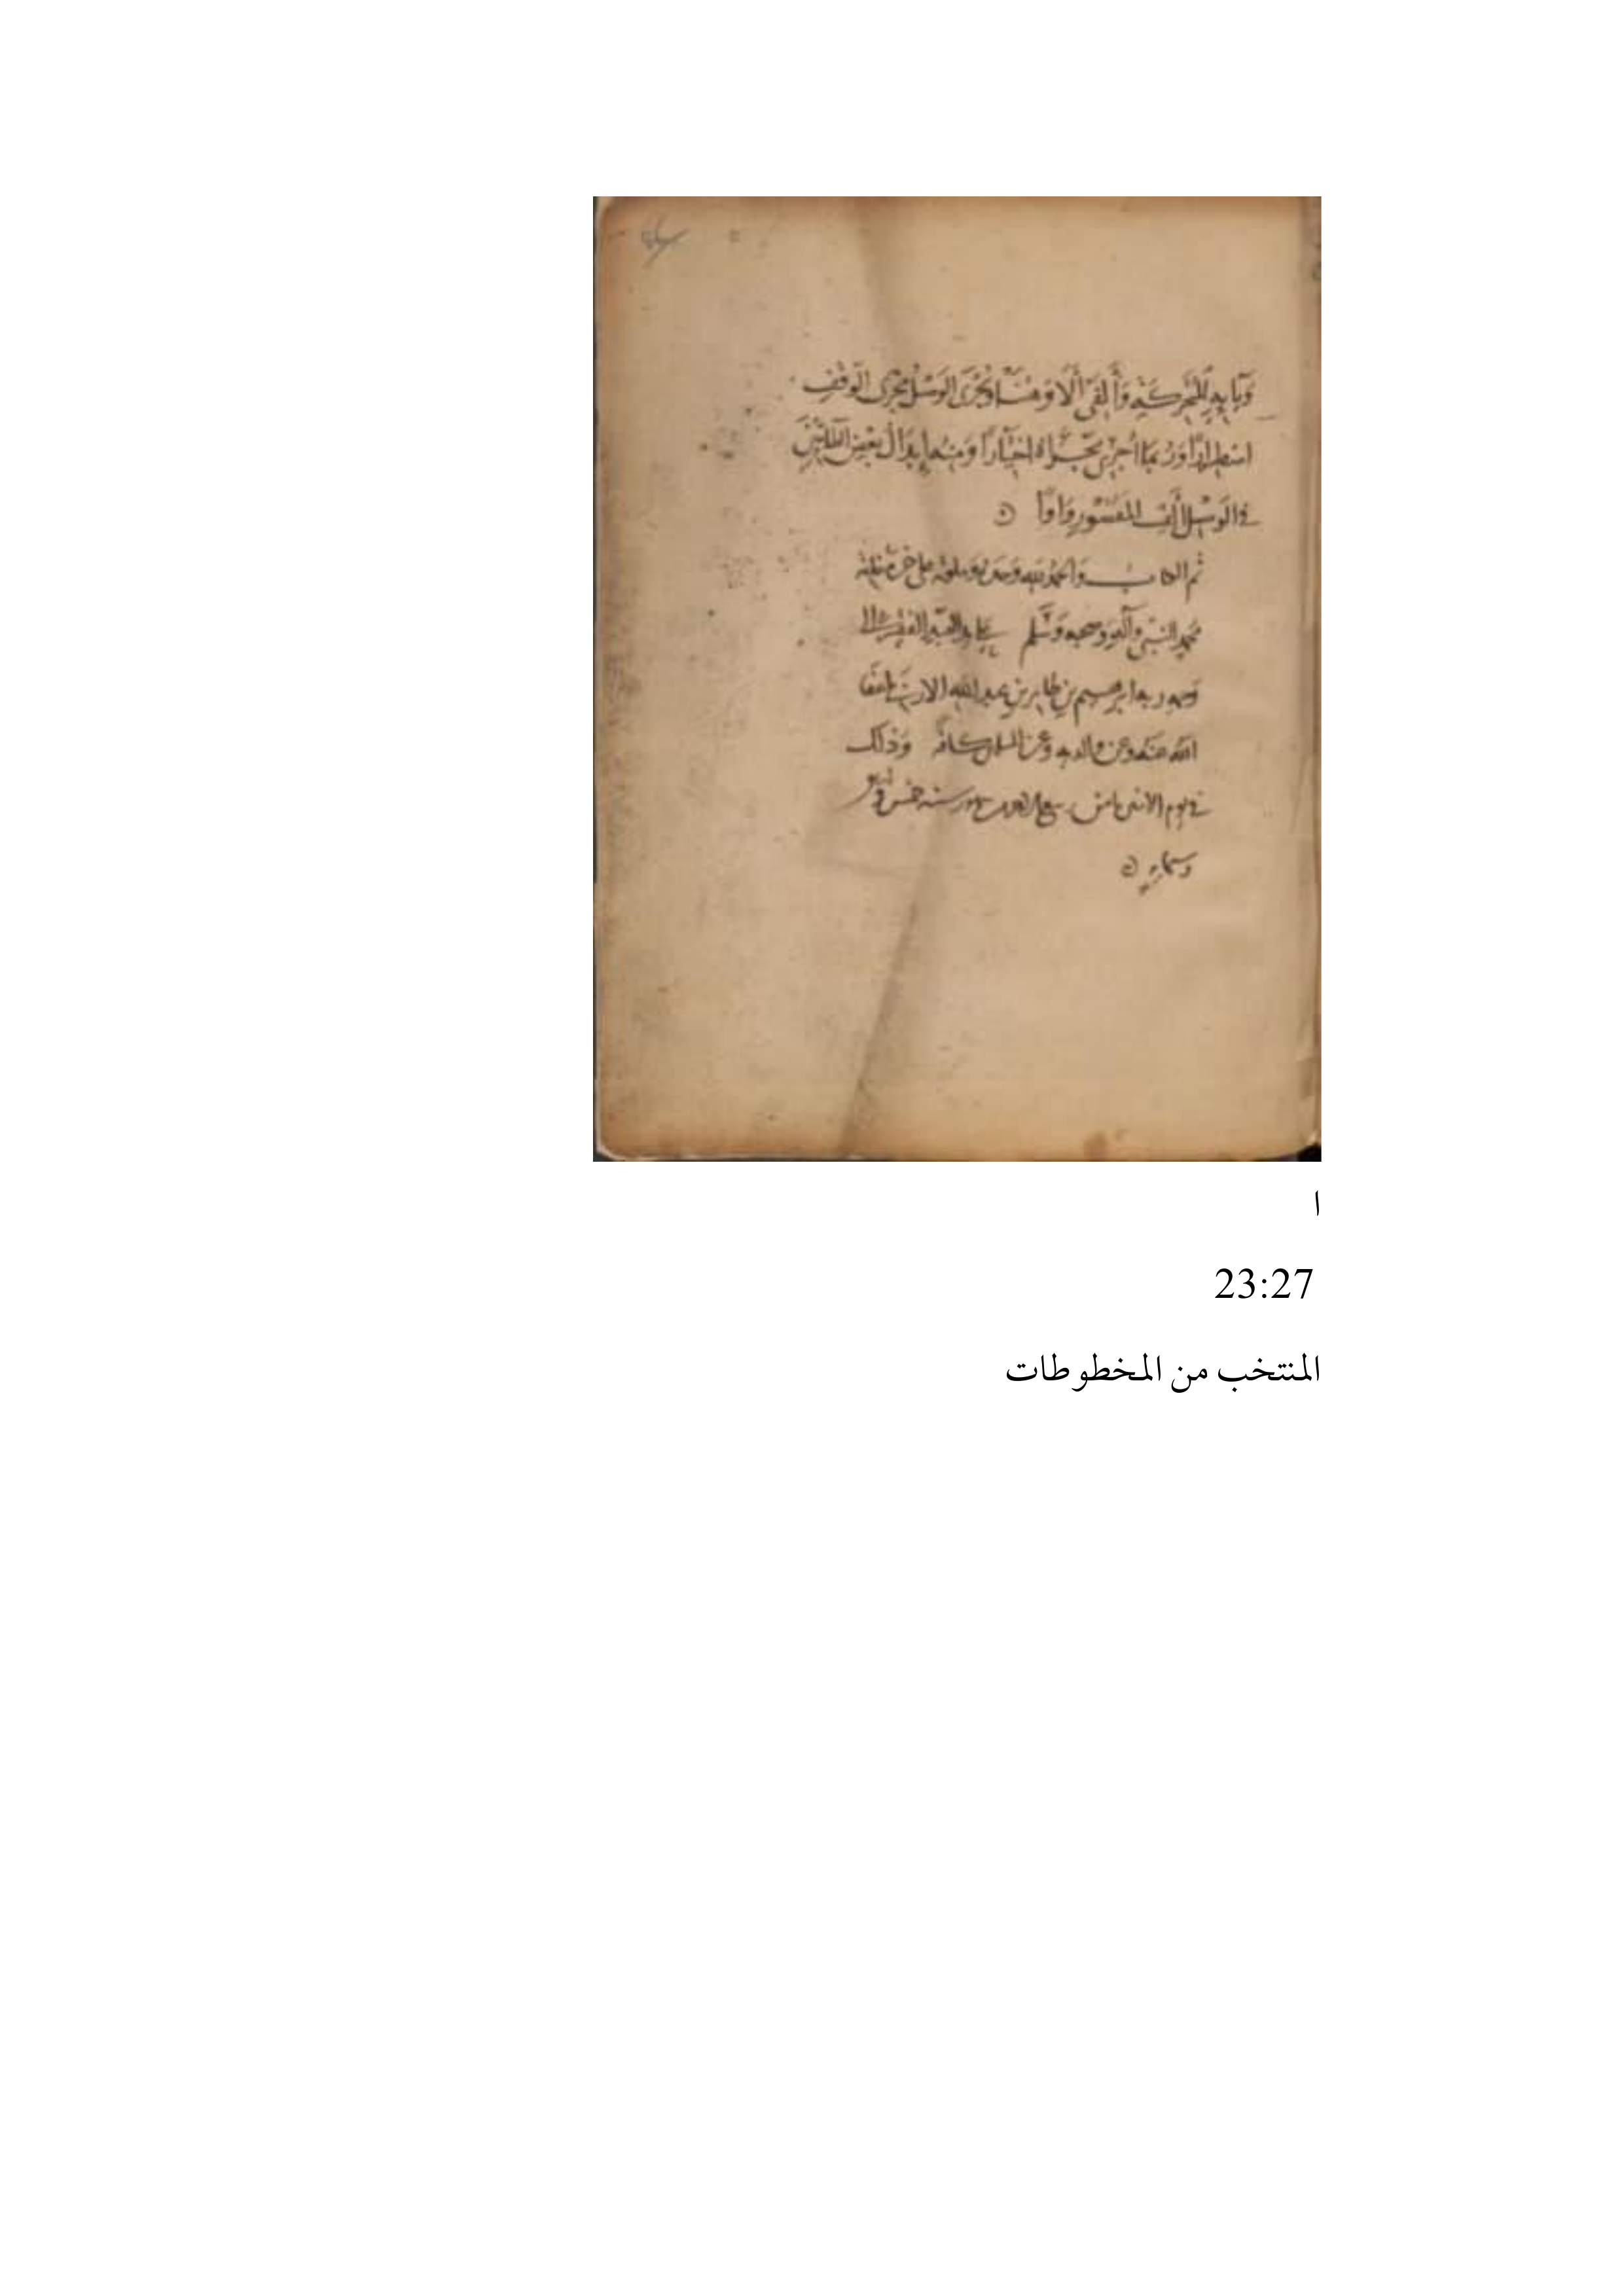 ويائه للحركة وألقى ألا ومنا ويجرى الوصل مجرى الوقف
اضطرارا وربما أجرى مجراه اختيارا ومنها إبدال بعض
في الوصل ألف المقصور واوا ه
تم الكتاب والحمد لله وحده وصلوته على خير خلقه
محمد النبي وآله وصحبه وسلم على يد العبد الفقير إلى
ربه ابرهيم بن طاهر بن عبد الله عفا
الله عنه وعن والديه وعن المسلمين كافة وذلك
في يوم الاثنين ثامن ربيع سنة خمس
وستمائة ه
ا
23:27
المنتخب من المخطوطات